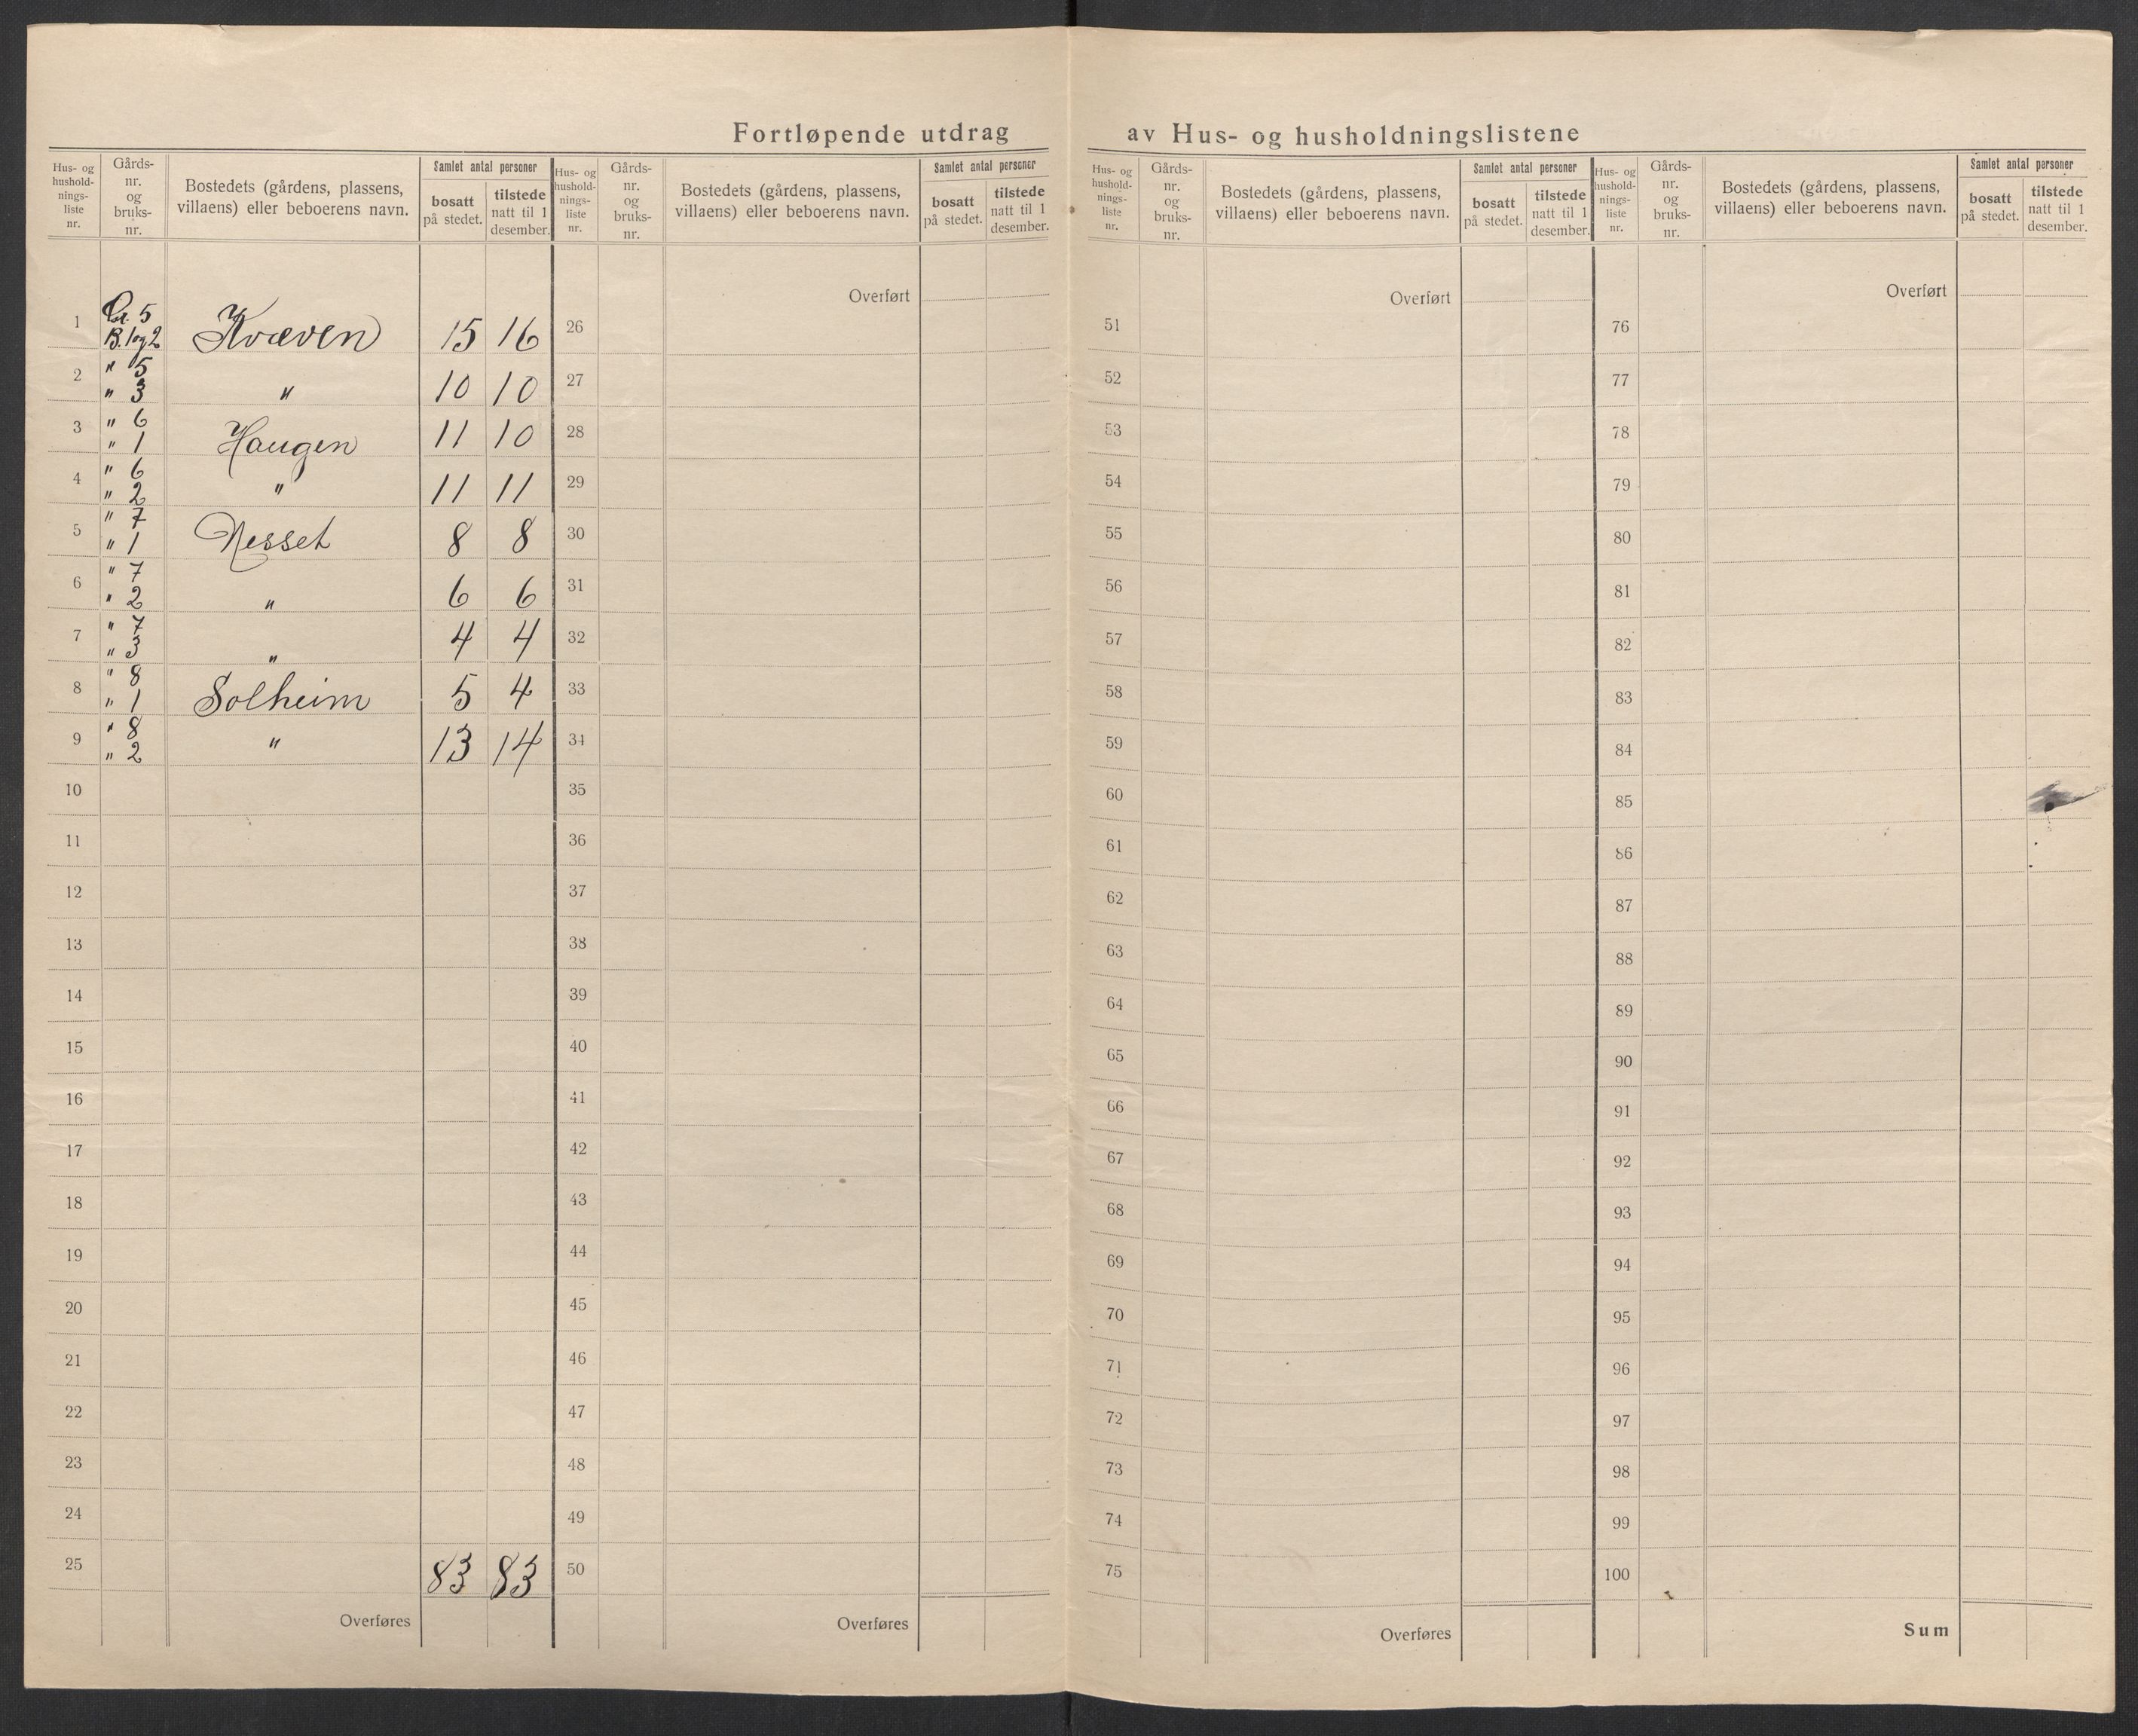 Fortløpende utdrag av Hus- og husholdningslistene
Hus- og hushold-nings-liste nr. | Gårds-nr. og bruks-nr. | Bostedets (gårdens, plassens, villaens) eller beboerens navn. | Samlet antal personer | bosatt på stedet. | tilstede natt til 1 desember.
1 | Gr. 5 B. 1 og 2 | Kvæven | 15 | 16
2 | " 5 " 3 | " | 10 | 10
3 | " 6 " 1 | Haugen | 11 | 10
4 | " 6 " 2 | " | 11 | 11
5 | " 7 " 1 | Nesset | 8 | 8
6 | " 7 " 2 | " | 6 | 6
7 | " 7 " 3 | " | 4 | 4
8 | " 8 " 1 | Solheim | 5 | 4
9 | " 8 " 2 | " | 13 | 14
10
11
12
13
14
15
16
17
18
19
20
21
22
23
24
25 | 83 | 83
Overføres
Hus- og hushold-nings-liste nr. | Gårds-nr. og bruks-nr. | Bostedets (gårdens, plassens, villaens) eller beboerens navn. | Samlet antal personer | bosatt på stedet. | tilstede natt til 1 desember.
Overført
26
27
28
29
30
31
32
33
34
35
36
37
38
39
40
41
42
43
44
45
46
47
48
49
50
Overføres
Hus- og hushold-nings-liste nr. | Gårds-nr. og bruks-nr. | Bostedets (gårdens, plassens, villaens) eller beboerens navn. | Samlet antal personer | bosatt på stedet. | tilstede natt til 1 desember.
Overført
51
52
53
54
55
56
57
58
59
60
61
62
63
64
65
66
67
68
69
70
71
72
73
74
75
Overføres
Hus- og hushold-nings-liste nr. | Gårds-nr. og bruks-nr. | Bostedets (gårdens, plassens, villaens) eller beboerens navn. | Samlet antal personer | bosatt på stedet. | tilstede natt til 1 desember.
Overført
76
77
78
79
80
81
82
83
84
85
86
87
88
89
90
91
92
93
94
95
96
97
98
99
100
Sum